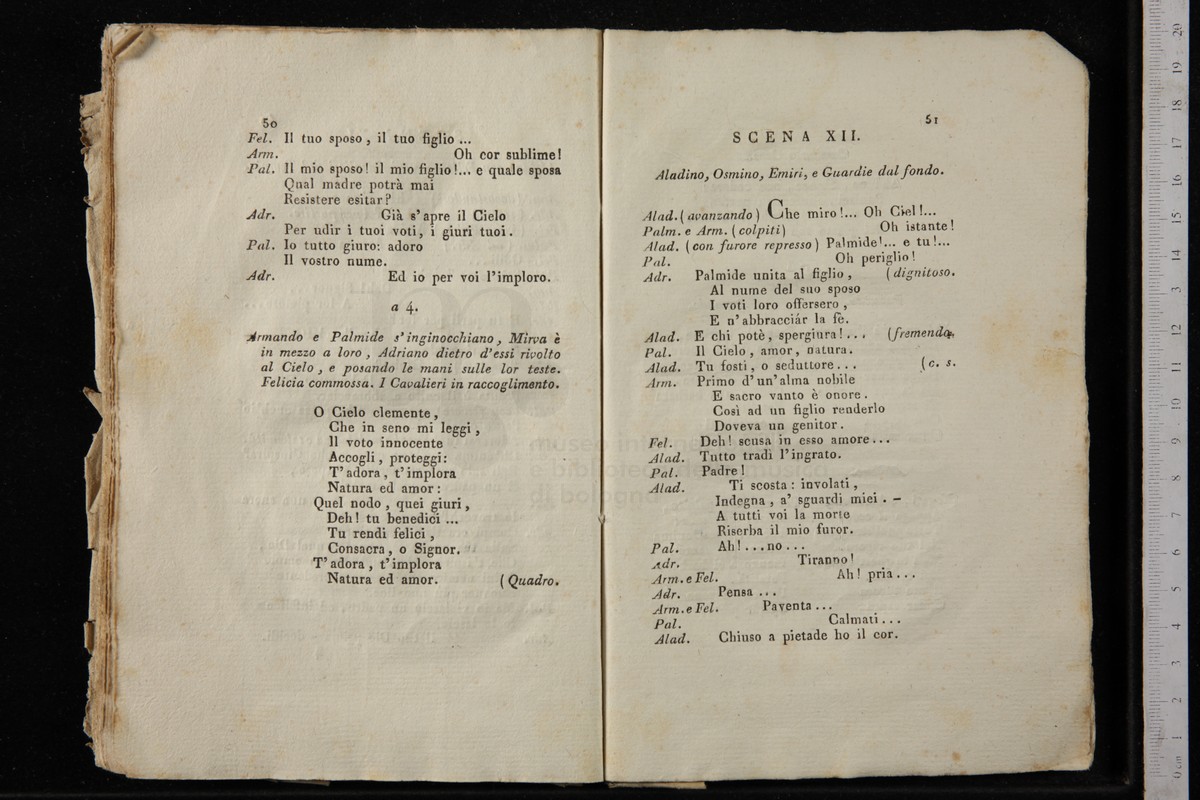 50
Fel. Il tuo sposo, il tuo figlio ...
Arm. Oh cor sublime!
Pal. Il mio sposo! il mio figlio!... e quale sposa
Qual madre potrà mai
Resistere esitar?
Adr. Già s'apre il Cielo
Per udir i tuoi voti, i giuri tuoi.
Pal. Io tutto giuro: adoro
Il vostro nume.
Adr. Ed io per voi l'imploro.
a 4.
Armando e Palmide s'inginocchiano, Mirva è
in mezzo a loro, Adriano dietro d'essi rivolto
al Cielo, e posando le mani sulle lor teste.
Felicia commossa. I Cavalieri in raccoglimento.
O Cielo clemente,
Che in seno mi leggi,
Il voto innocente
Accogli, proteggi:
T'adora, t'implora
Natura ed amor:
Quel nodo, quei giuri,
Deh! tu benedici ...
Tu rendi felici,
Consacra, o Signor.
T'adora, t'implora
Natura ed amor. (Quadro.
51
SCENA XII.
Aladino, Osmino, Emiri, e Guardie dal fondo.
Alad. (avanzando) Che miro!... Oh Ciel!...
Palm. e Arm. (colpiti) Oh istante!
Alad. (con furore represso) Palmide!... e tu!...
Pal. Oh periglio!
Adr. Palmide unita al figlio, (dignitoso.
Al nume del suo sposo
I voti loro offersero,
E n'abbracciár la fè.
Alad. E chi potè, spergiura!... (fremendo.
Pal. Il Cielo, amor, natura.
Alad. Tu fosti, o seduttore... (c. s.
Arm. Primo d'un'alma nobile
E sacro vanto è onore.
Così ad un figlio renderlo
Doveva un genitor.
Fel. Deh! scusa in esso amore...
Alad. Tutto tradì l'ingrato.
Pal. Padre!
Alad. Ti scosta: involati,
Indegna, a' sguardi miei. —
A tutti voi la morte
Riserba il mio furor.
Pal. Ah!...no...
Adr. Tiranno!
Arm. e Fel. Ah! pria...
Adr. Pensa ...
Arm. e Fel. Paventa...
Pal. Calmati...
Alad. Chiuso a pietade ho il cor.